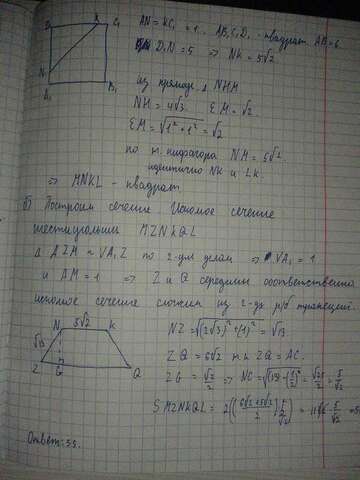 AN = KC₁ = 1. A₁B₁C₁D₁ - квадрат AB = 6
D₁N = 5 ⇒ NK = 5√2
из прямоуг. Δ NHM
NH = 4√3. EM = √2.
EM = √1² + 1² = √2
по т. пифагора NM = 5√2.
идентично NK и LK.
⇒ MNKL - квадрат.
б) Построим сечение. Искомое сечение
шестиугольник MZNKQL
Δ AZM ~ VA₁Z по 2-ум углам ⇒ VA₁ = 1
и AM = 1 ⇒ Z и Q середины соответственно
искомое сечение сложим из 2-ух р/б трапеций.
N 5√2 K
√13
Z G Q
NZ = √(2√3)² + (1)² = √13
ZQ = 6√2 т.к ZQ = AC.
ZG = √2/2 ⇒
S MZNKQL =
Ответ: 55.